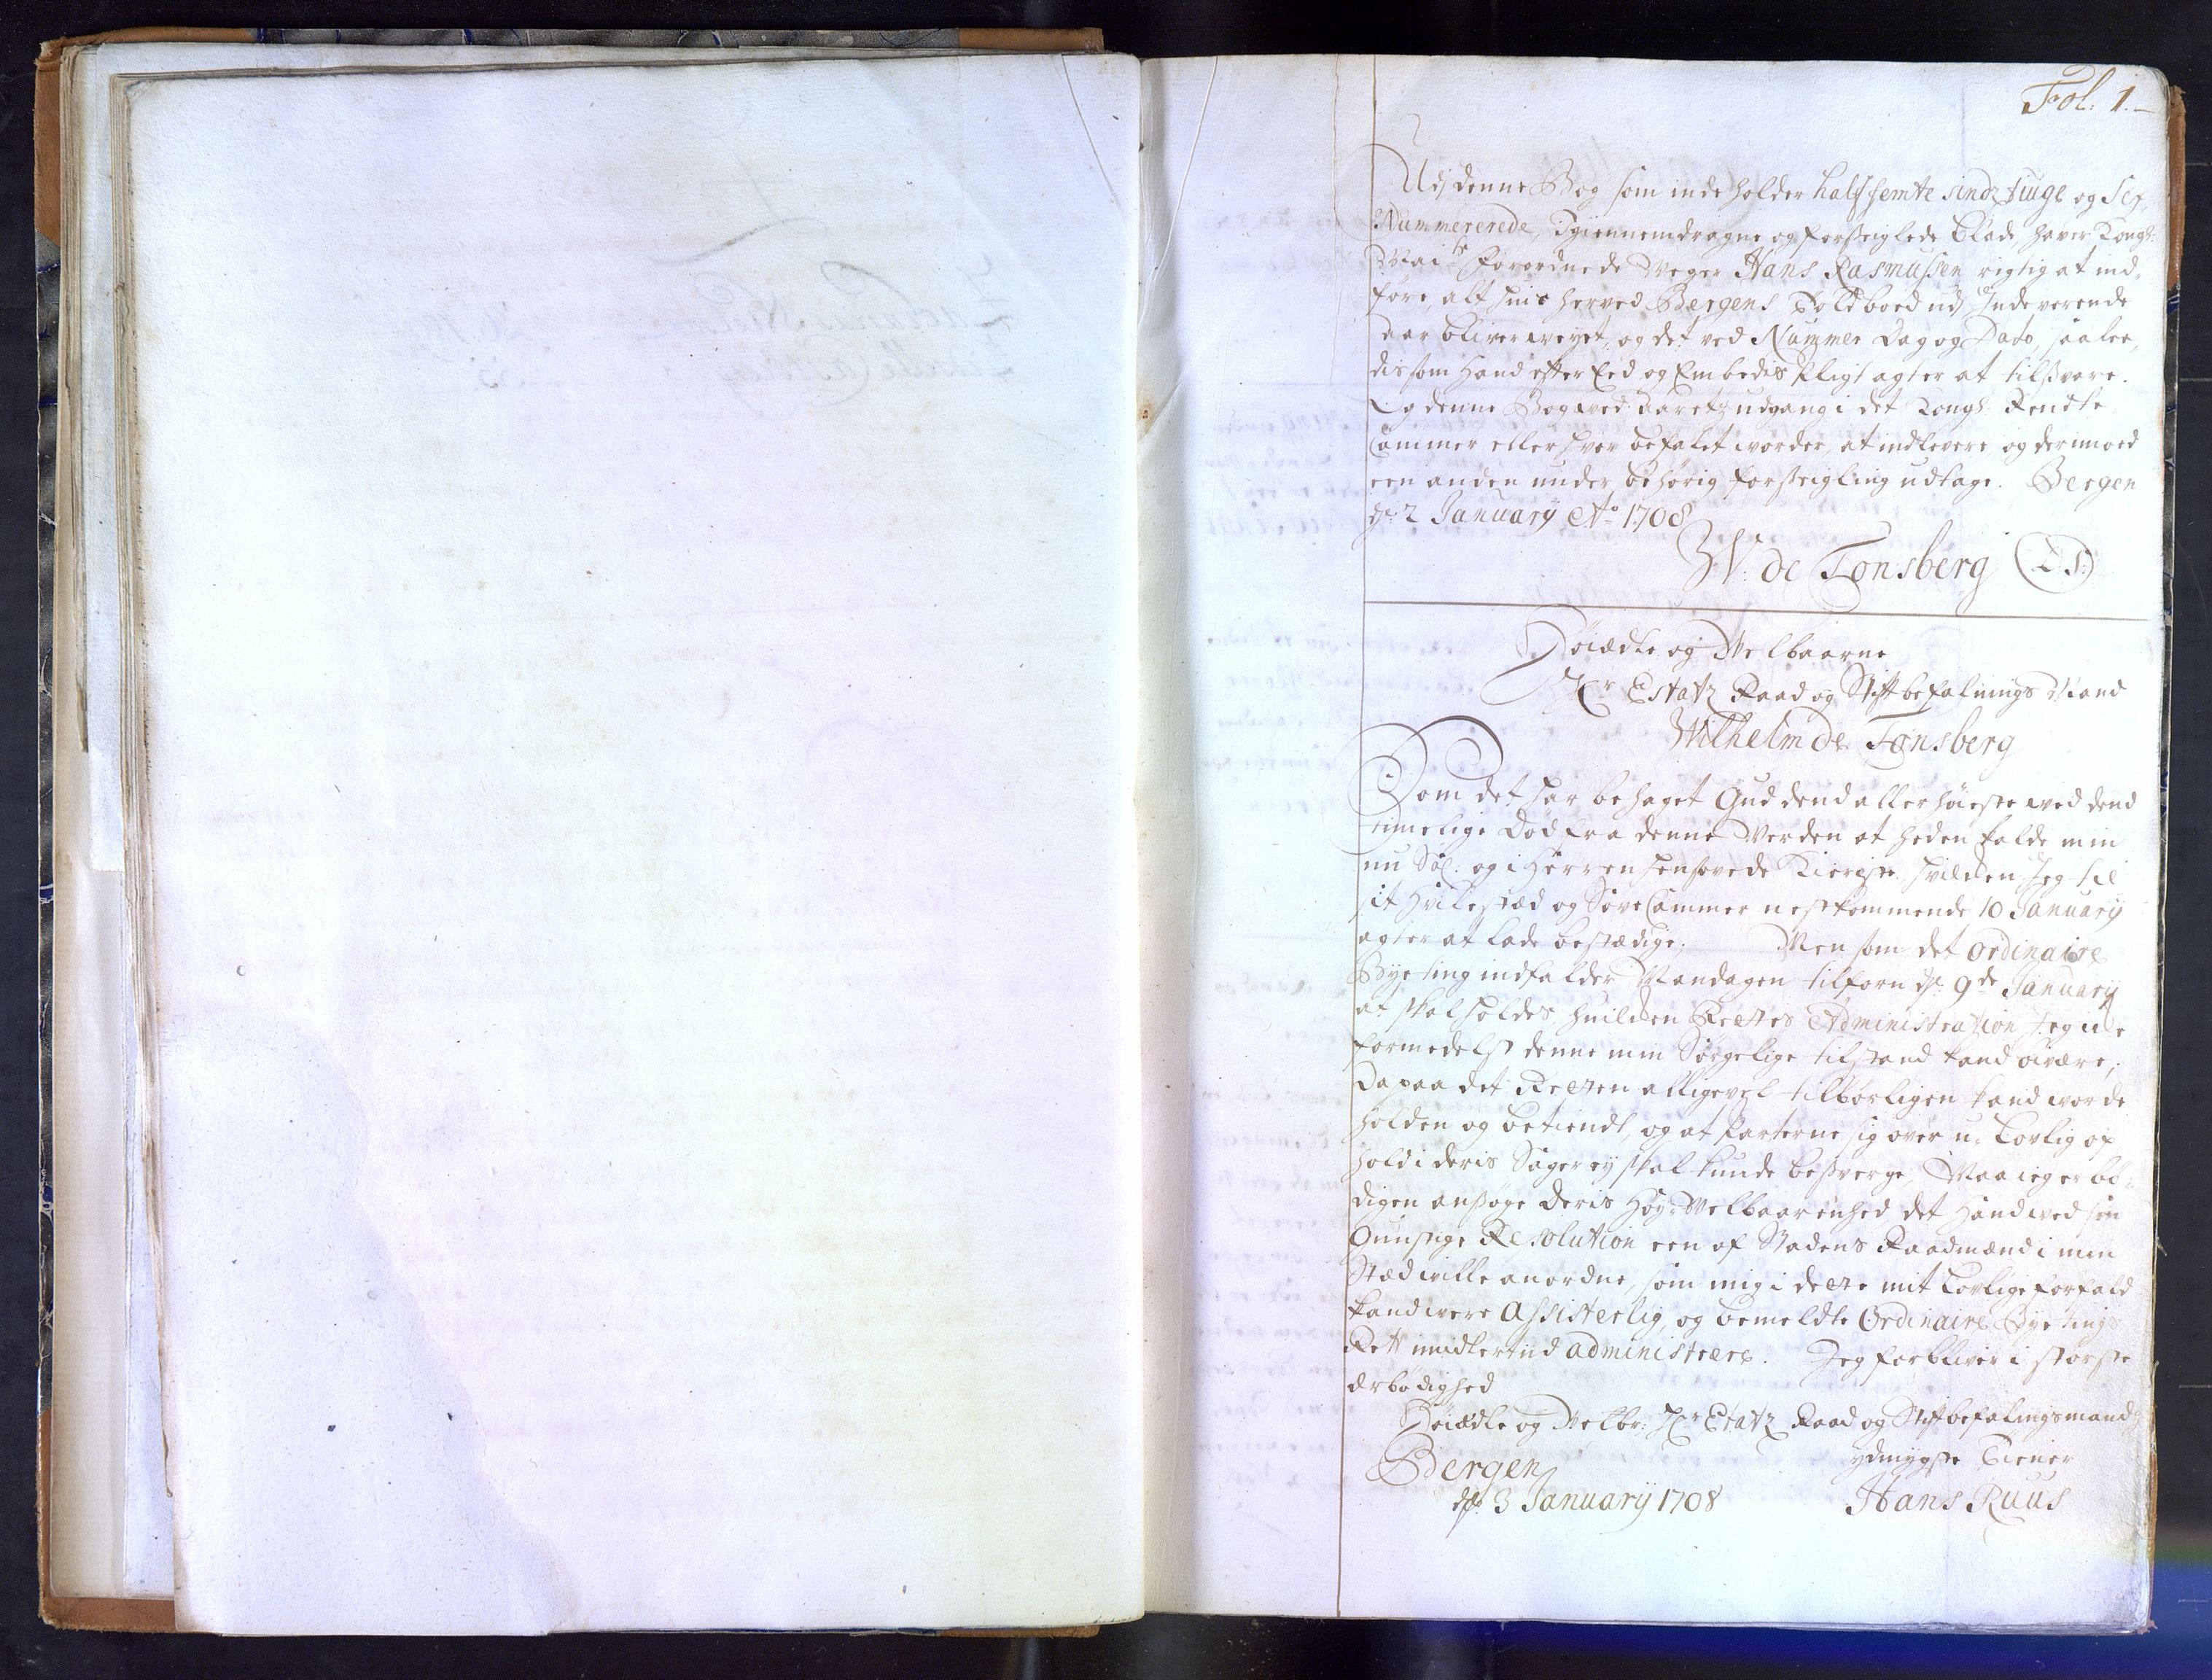 Fol. 1.
Udj denne Bog som indeholder halffemte sindz tiuge og Sex
Nummererede, Igiennemdragne og forseiglede blade haver Kongl:
Mai.ts Forordnede Veyer Hans Rasmussen rigtig at ind-
føre, alt hvis herved Bergens Toldboed udj Indeverende
aar bliver weyet, og det ved Nummer Dag og Dato, saalee,
dis som hand effter Eed og Embedis pligt agter at tilsvare.
Og denne Bog wed aaretz udgang i det Kongl. Rendte
Cammer eller hvor befalet worder, at indlevere og derimoed
een anden under behørig forseigling udtage. Bergen
d. 2 January Ao 1708
W: de Tonsberg (L S)
Høiædle og Welbaarne
Hr Estatz Raad og Stiftbefalnings Mand
Wilhelm de Tønsberg
Som det har behaget Gud dend allerhøieste wed dend
timelige Død fra denne Verden at heden kalde min
nu Sal: og i Herren hensovede Kieriste hvilcken Jeg til
sit Hvilestæd og SoveCammer nestkommende 10 January
agter at lade bestædige; Men som det ordinaire
Bye ting indfalder Mandagen tilforn d. 9de January
at skal holdes hvilcken Rettes Administration Jeg icke
formedelst denne min Sørgelige tilstand kand oivære;
Da paa det Retten alligevel tilbørligen kand worde
holden og betiendt, og at parterne sig over u-Lovlig op
hold i deris Sager ey skal kunde besverge, Maa ieg erbø-
digen ansøge Deris Høy-Welbaarenhed det hand wed sin
Gunstige Resolution een af Stadens Raadmænd i min
Stæd wille anordne, som mig i dette mit Lovlige forfald
kand were Assisterlig, og bemeldte Ordinaire Bye tings
Rett imidlertiid administrere. Jeg forbliver i største
ærbødighed
Høiædle og Welbr: Hr Etatz Raad og Stiftbefalingsmands
ydmygste Tiener
Bergen
d. 3 January 1708
Hans Ruus